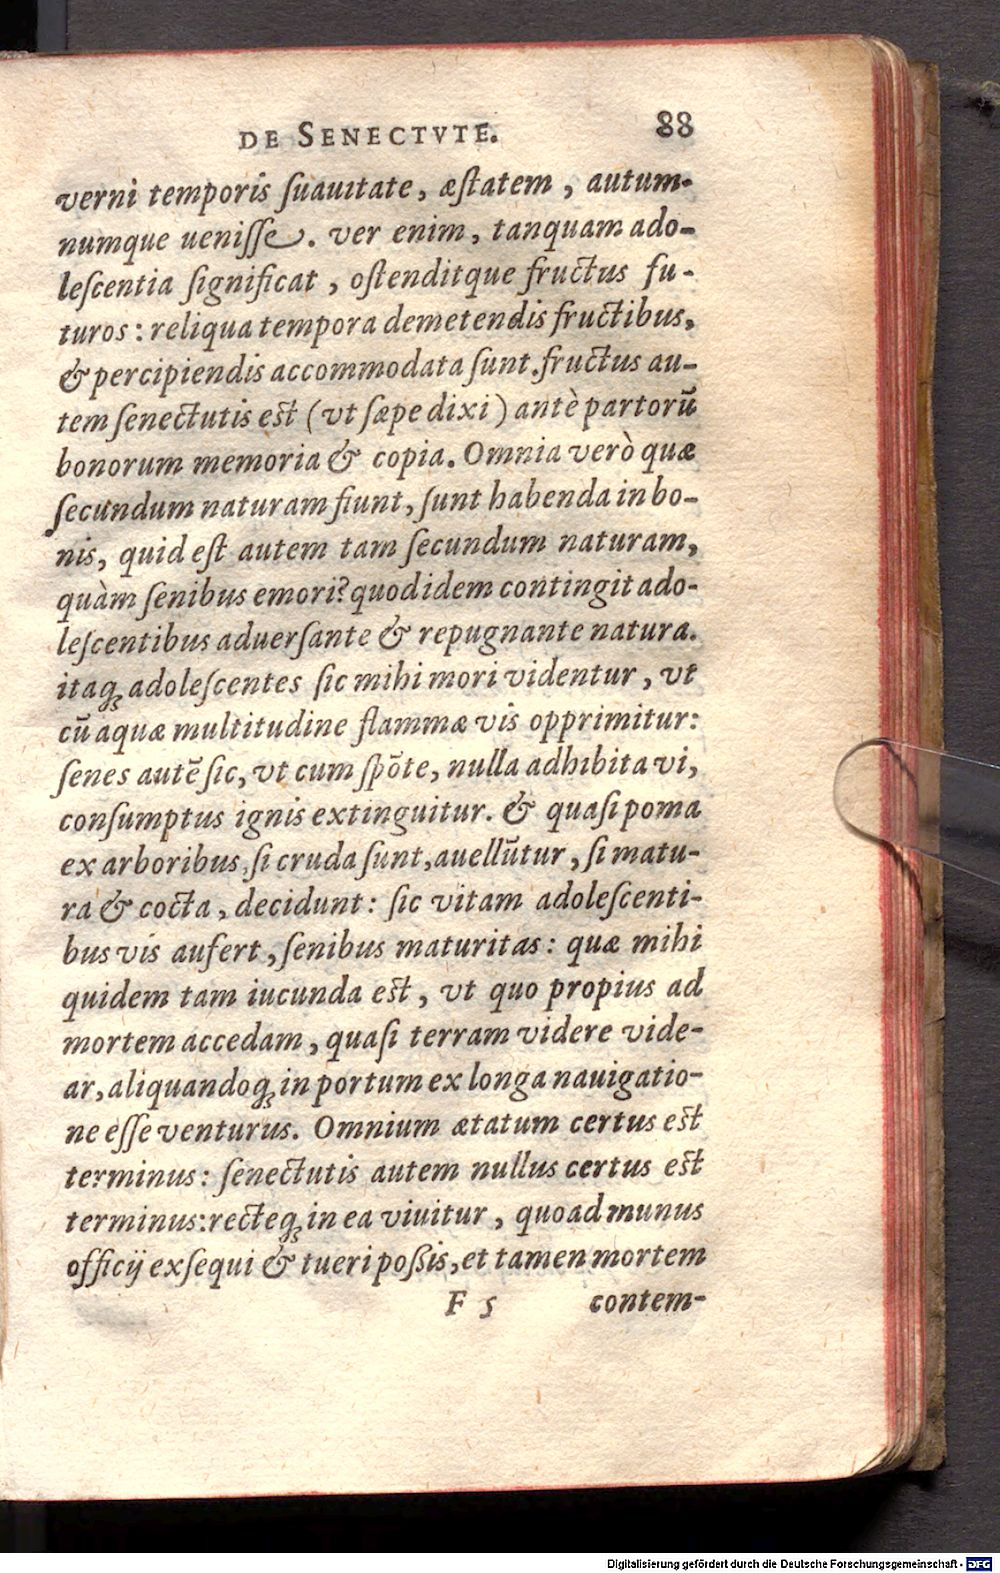 DE SENECTVTE. 88
verni temporis ſuauitate, æſtatem, autum-
numque ueniſſe. ver enim, tanquam ado-
leſcentia ſignificat, oſtenditque fructus fu-
turos: reliqua tempora demetendis fructibus,
& percipiendis accommodata ſunt. fructus au-
tem ſenectutis est (vt ſæpe dixi) antè partorū
bonorum memoria & copia. Omnia verò quæ
ſecundum naturam fiunt, ſunt habenda in bo-
nis, quid eſt autem tam ſecundum naturam,
quàm ſenibus emori? quod idem contingit ado-
leſcentibus aduerſante & repugnante natura.
itaq; adoleſcentes ſic mihi mori videntur, vt
cū aquæ multitudine flammæ vis opprimitur:
ſenes autē ſic, vt cum ſpōte, nulla adhibita vi,
conſumptus ignis extinguitur. & quaſi poma
ex arboribus, ſi cruda ſunt, auellūtur, ſi matu-
ra & cocta, decidunt: ſic vitam adoleſcenti-
bus vis aufert, ſenibus maturitas: quæ mihi
quidem tam iucunda est, vt quo propius ad
mortem accedam, quaſi terram videre vide-
ar, aliquandoq; in portum ex longa nauigatio-
ne eſſe venturus. Omnium ætatum certus est
terminus: ſenectutis autem nullus certus est
terminus: recteq; in ea viuitur, quoad munus
officij exſequi & tueri poßis, et tamen mortem
F 5 contem-
Digitalisierung gefördert durch die Deutsche Forschungsgemeinschaft - DFG